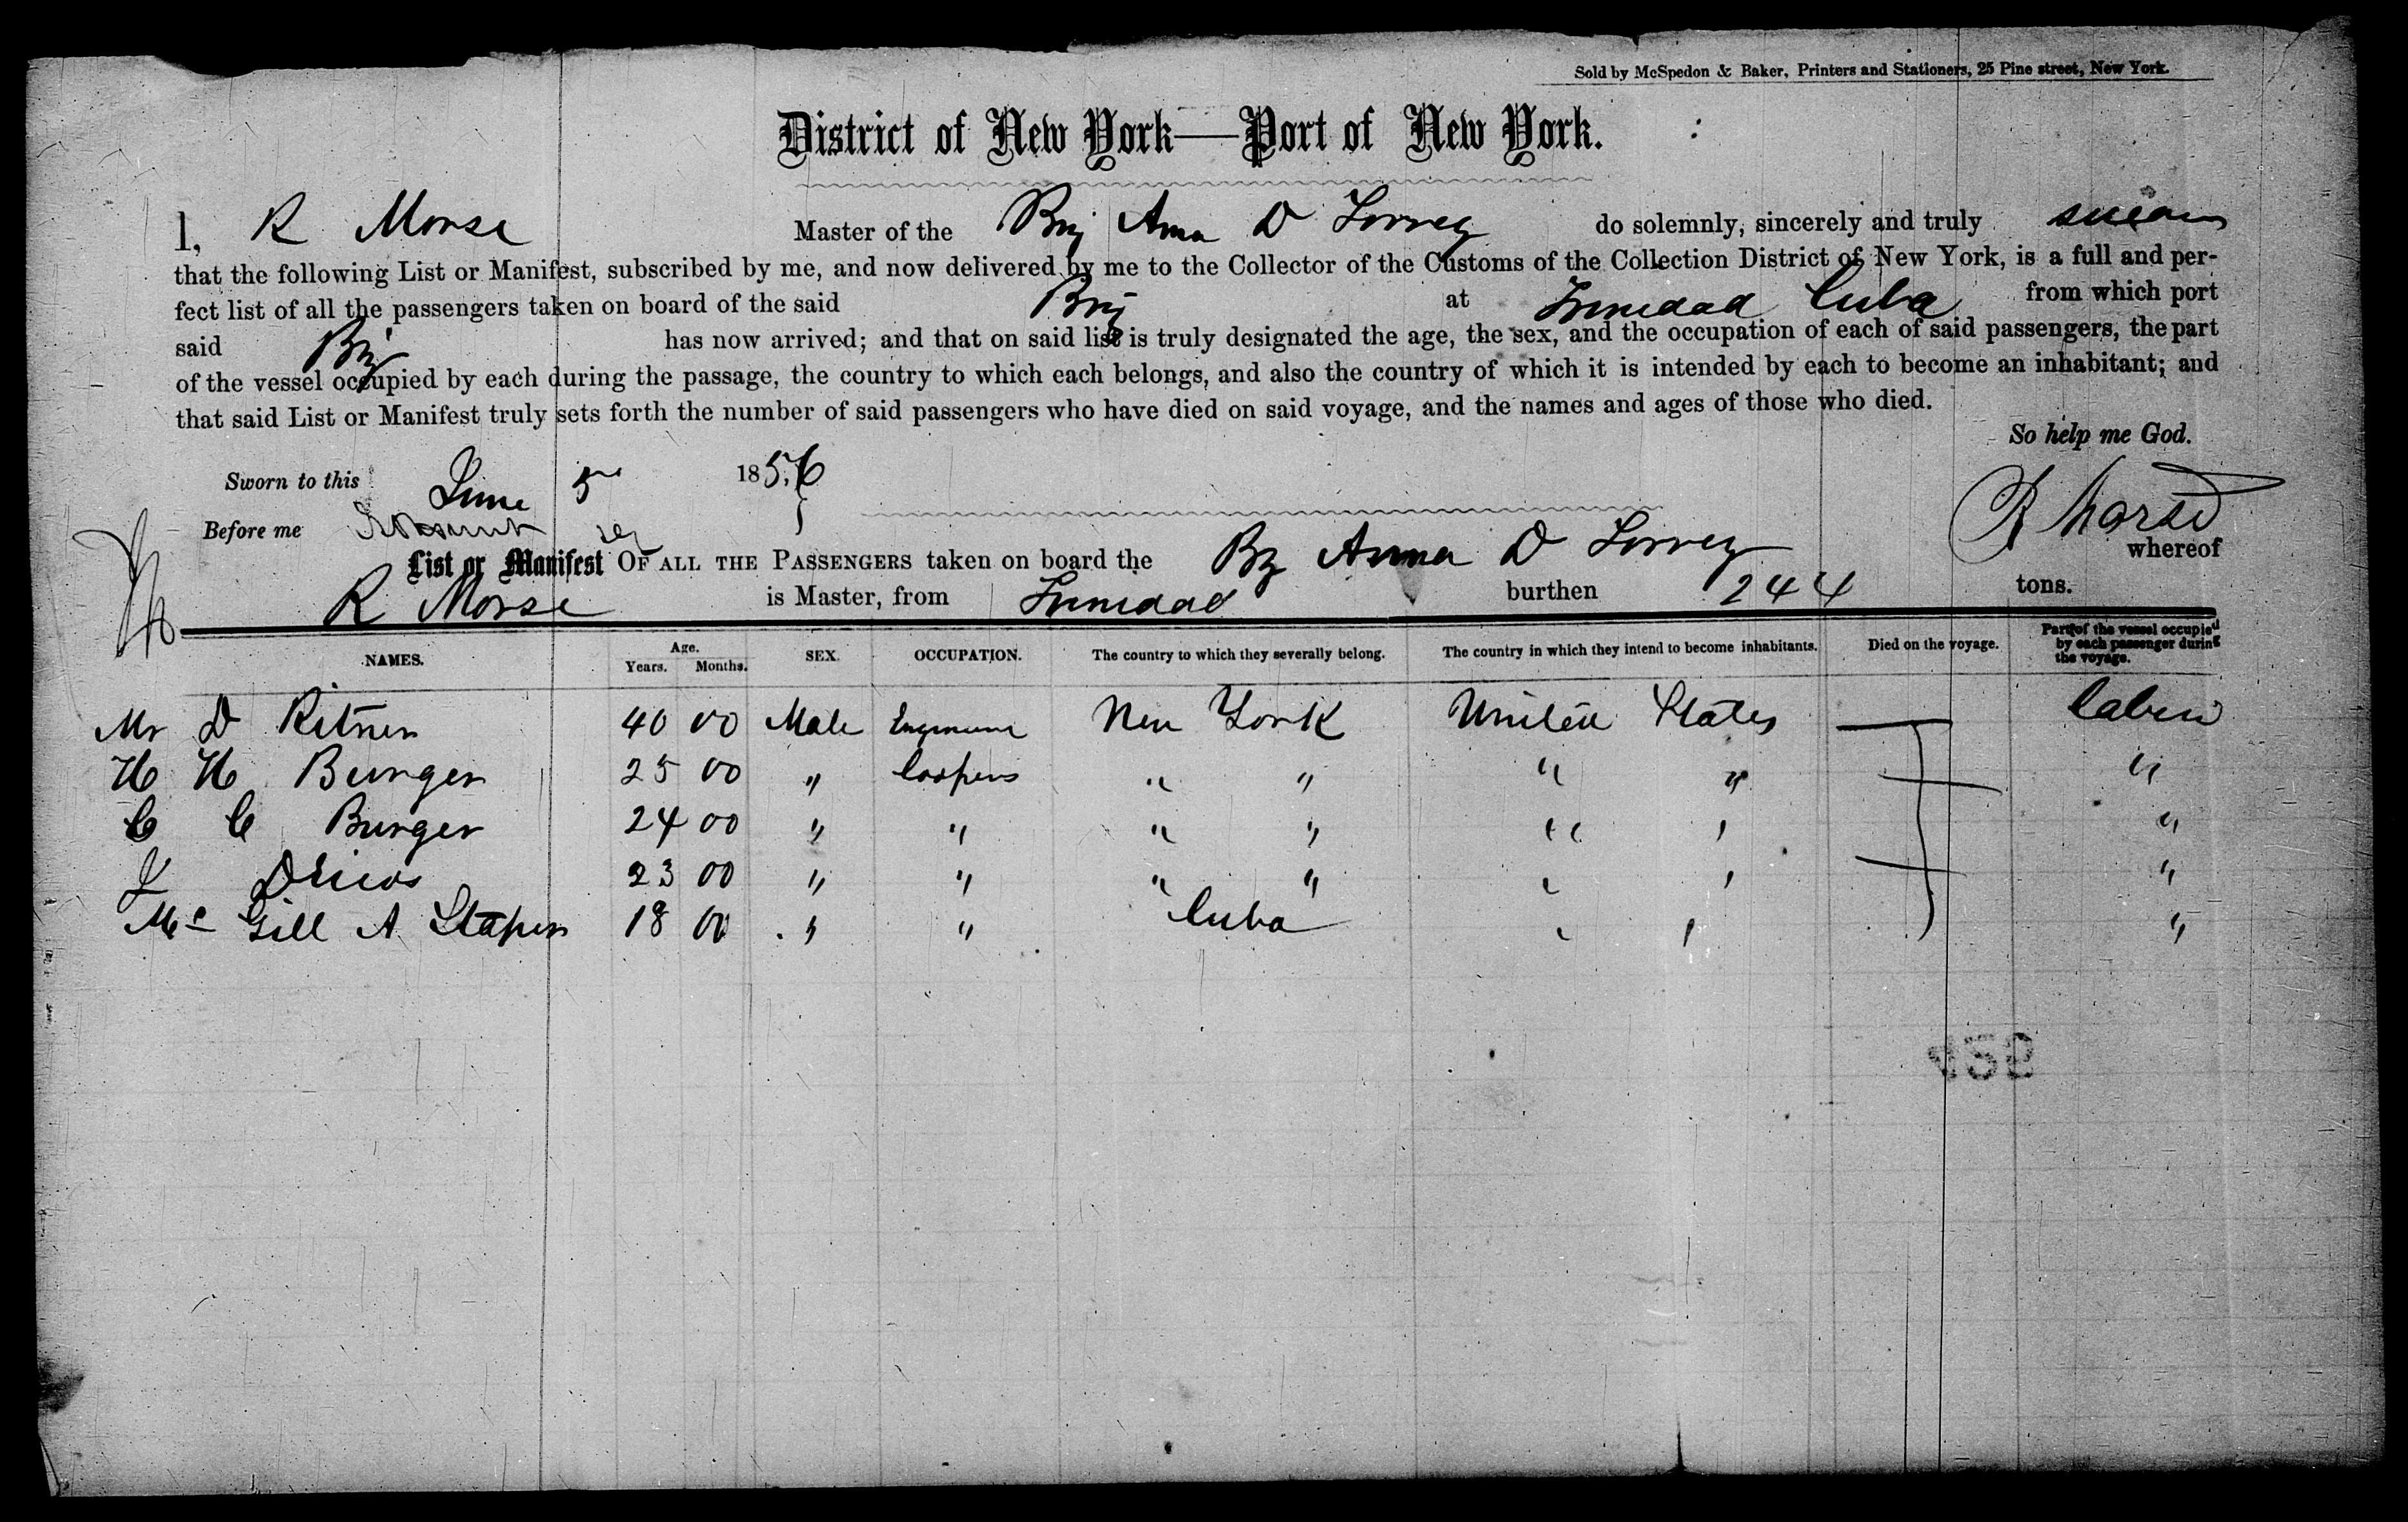 Sold by McSpedon & Baker, Printers and Stationers, 25 Pine street, New York.
District of New York—Port of New York.
I, R Morse Master of the Brig Anna D Torrey do solemnly, sincerely and truly swear
that the following List or Manifest, subscribed by me, and now delivered by me to the Collector of the Customs of the Collection District of New York, is a full and per-
fect list of all the passengers taken on board of the said Brig at Trinidad Cuba from which port
said Brig has now arrived; and that on said list is truly designated the age, the sex, and the occupation of each of said passengers, the part
of the vessel occupied by each during the passage, the country to which each belongs, and also the country of which it is intended by each to become an inhabitant; and
that said List or Manifest truly sets forth the number of said passengers who have died on said voyage, and the names and ages of those who died.
So help me God.
Sworn to this June 5 1856
R Morse
Before me
List or Manifest OF ALL THE PASSENGERS taken on board the Bg Anna D Torrey whereof
R Morse is Master, from Trinidad burthen 244 tons.
NAMES. Age. Years. Months. SEX. OCCUPATION. The country to which they severally belong. The country in which they intend to become inhabitants. Died on the voyage. Part of the vessel occupied by each passenger during the voyage.
Mr D Ritner 40 00 Male Engineer New York United States Cabin
H H Burger 25 00 " Coopers " " " " "
C C Burger 24 00 " " " " " " "
J 23 00 " " " " " " "
Mc Gill A 18 00 " " Cuba " " "